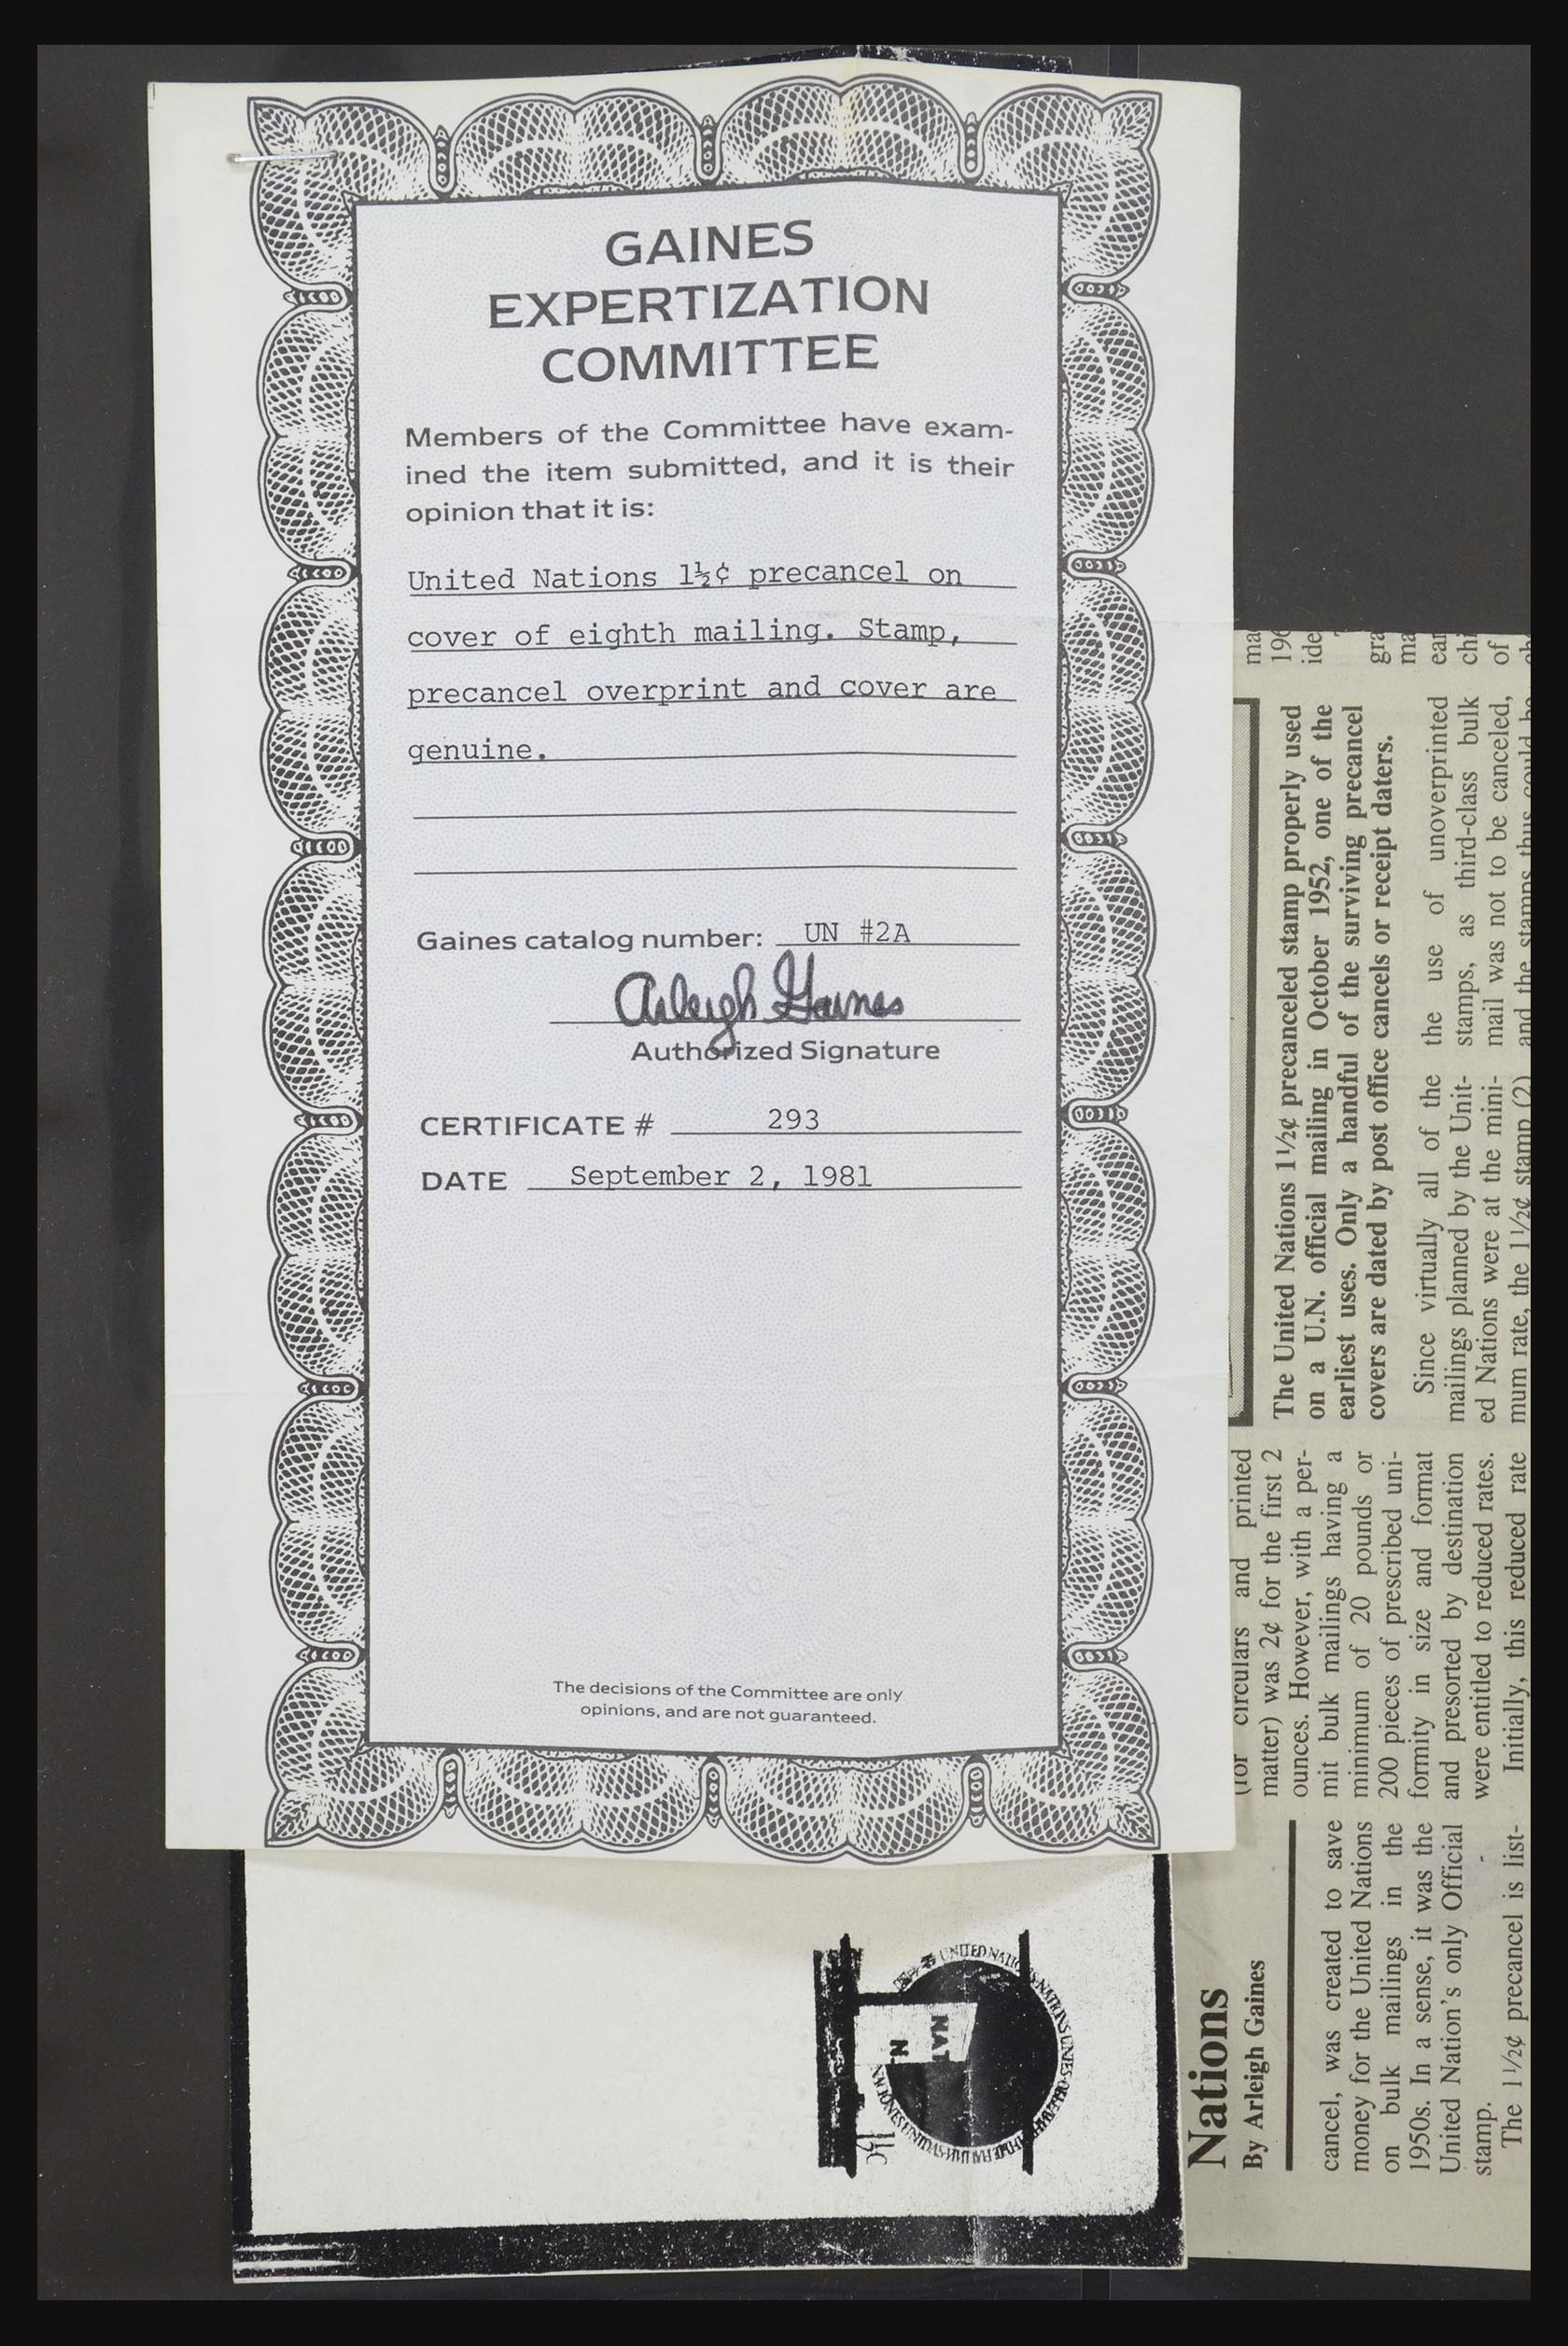 GAINES
EXPERTIZATION
COMMITTEE
Members of the Committee have exam-
ined the item submitted, and it is their
opinion that it is:
United Nations 1½¢ precancel on
cover of eighth mailing. Stamp,
precancel overprint and cover are
genuine.
Gaines catalog number: UN #2A
Arleigh Gaines
Authorized Signature
CERTIFICATE # 293
DATE September 2, 1981
The decisions of the Committee are only
opinions, and are not guaranteed.
UNITED NATIONS
NAT
N
1½c
Nations
By Arleigh Gaines
cancel, was created to save
money for the United Nations
on bulk mailings in the
1950s. In a sense, it was the
United Nation's only Official
stamp.
The 1½¢ precancel is list-
(for circulars and printed
matter) was 2¢ for the first 2
ounces. However, with a per-
mit bulk mailings having a
minimum of 20 pounds or
200 pieces of prescribed uni-
formity in size and format
and presorted by destination
were entitled to reduced rates.
Initially, this reduced rate
The United Nations 1½¢ precanceled stamp properly used
on a U.N. official mailing in October 1952, one of the
earliest uses. Only a handful of the surviving precancel
covers are dated by post office cancels or receipt daters.
Since virtually all of the
mailings planned by the Unit-
ed Nations were at the mini-
mum rate, the 1½¢ stamp (2)
the use of unoverprinted
stamps, as third-class bulk
mail was not to be canceled,
and the stamps thus could be
ma
196
ide
gra
ma
ear
chi
of